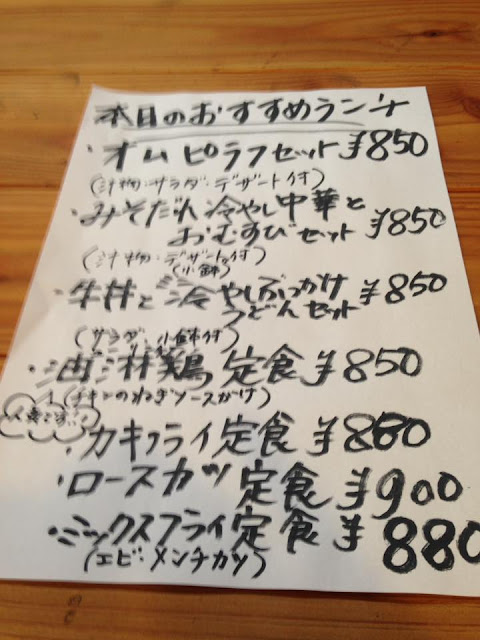 本日のおすすめランチ
・オムピラフセット ¥850
(汁物・サラダ・デザート付)
・みそだれ冷やし中華と
おむすびセット ¥850
(汁物・デザート付)
(小鉢)
・牛丼と冷やしぶっかけ
うどんセット ¥850
(サラダ・小鉢付)
・油淋鶏定食 ¥850
(チキンのねぎソースがけ)
人気です
・カキフライ定食 ¥880
・ロースカツ定食 ¥900
・ミックスフライ定食 ¥880
(エビ・メンチカツ)